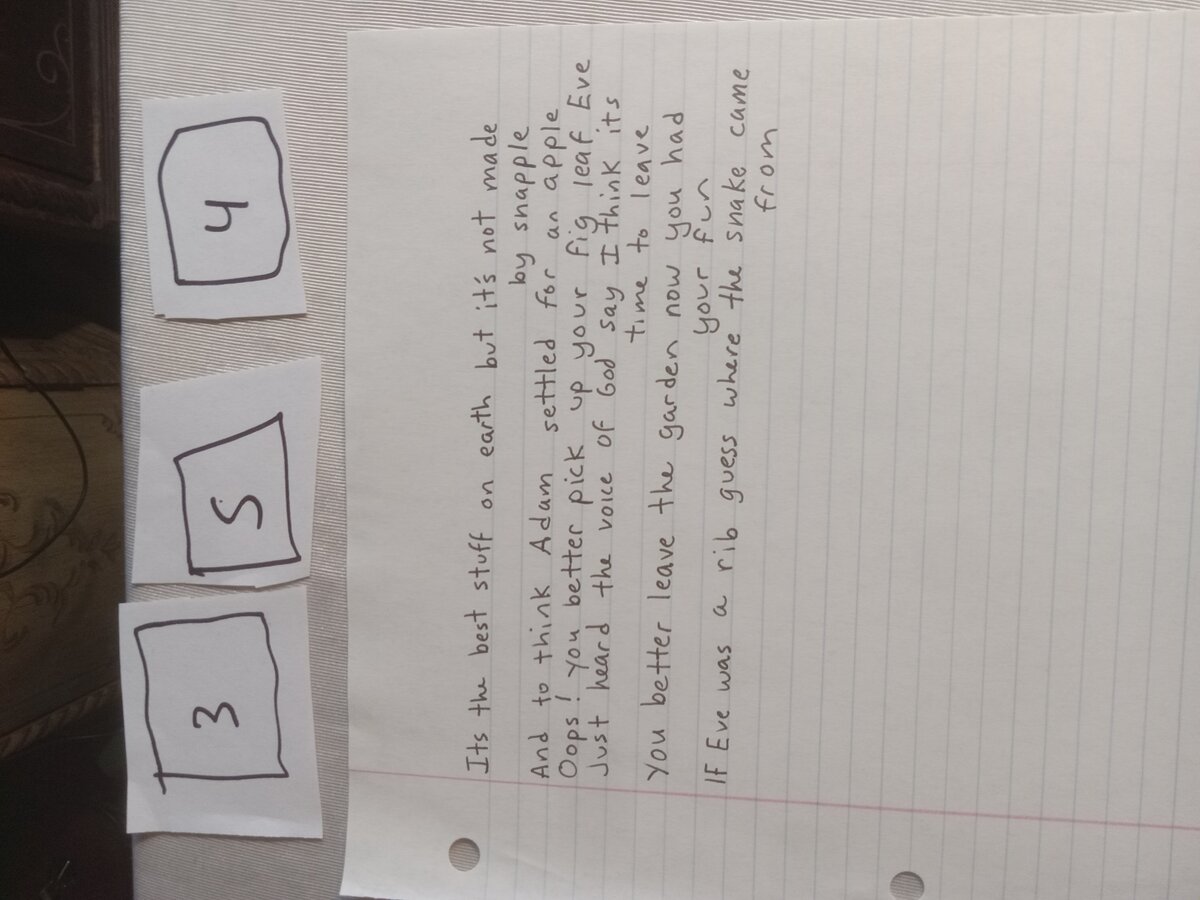 3
5
4
Its the best stuff on earth but it's not made
by snapple
And to think Adam settled for an apple
Oops! You better pick up your fig leaf Eve
Just heard the voice of God say I think its
time to leave
You better leave the garden now you had
your fun
If Eve was a rib guess where the snake came
from